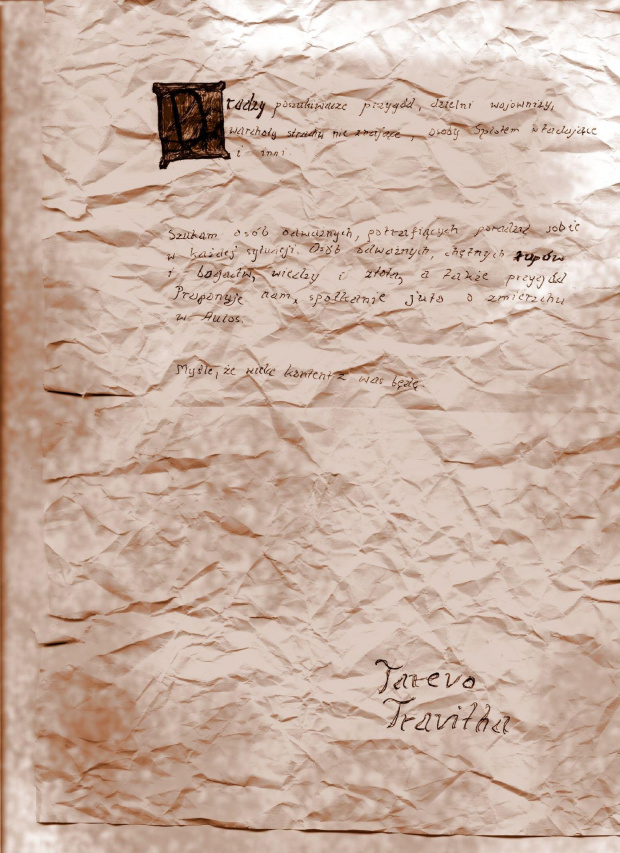 Drodzy poszukiwacze przygód, dzielni wojownicy,
warchoły strachu nie znające, osoby Splotem władające
i inni.
Szukam osób odważnych, potrafiących poradzić sobie
w każdej sytuacji. Osób odważnych, chętnych łupów
i bogactw, wiedzy i złota, a także przygód
Proponuję nam spotkanie jutro o zmierzchu
w Aulos.
Myślę, że wielu kontent z was będzie.
Tarevo
Travitha